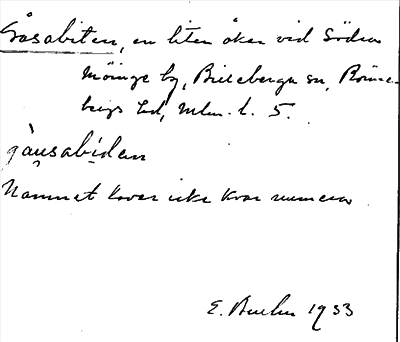 Gåsabiten, en liten åker vid Södra
Möinge by, Billeberga sn, Rönne-
bergs hd, Mlm. l. 5.
gàu̯sabi̯den
Namnet lever icke kvar numera
E. 1933